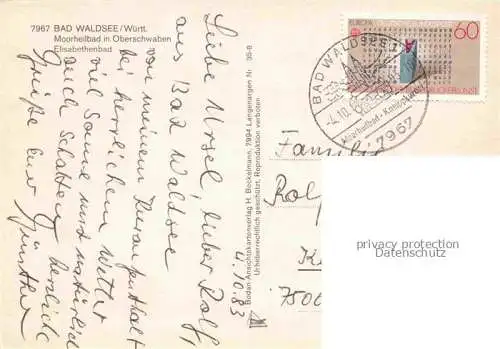 7967 BAD WALDSEE/Württ.
Moorheilbad in Oberschwaben
Elisabethenbad
Liebe Ursel, lieber Rolf,
aus Bad Waldsee
von meinem Kuraufenthalt
bei herrlichem Wetter
viel Sonne und natürlich
auch Schatten herzliche
Grüße euer
Günther
4.10.83
Bodan-Ansichtskartenverlag H. Bockelmann, 7994 Langenargen Nr. 36-8
Urheberrechtlich geschützt, Reproduktion verboten
EUROPA
60
BAD WALDSEE
-4.10.
Moorheilbad - Kneippkurort
7967
Familie
Rolf
7500
privacy protection
Datenschutz